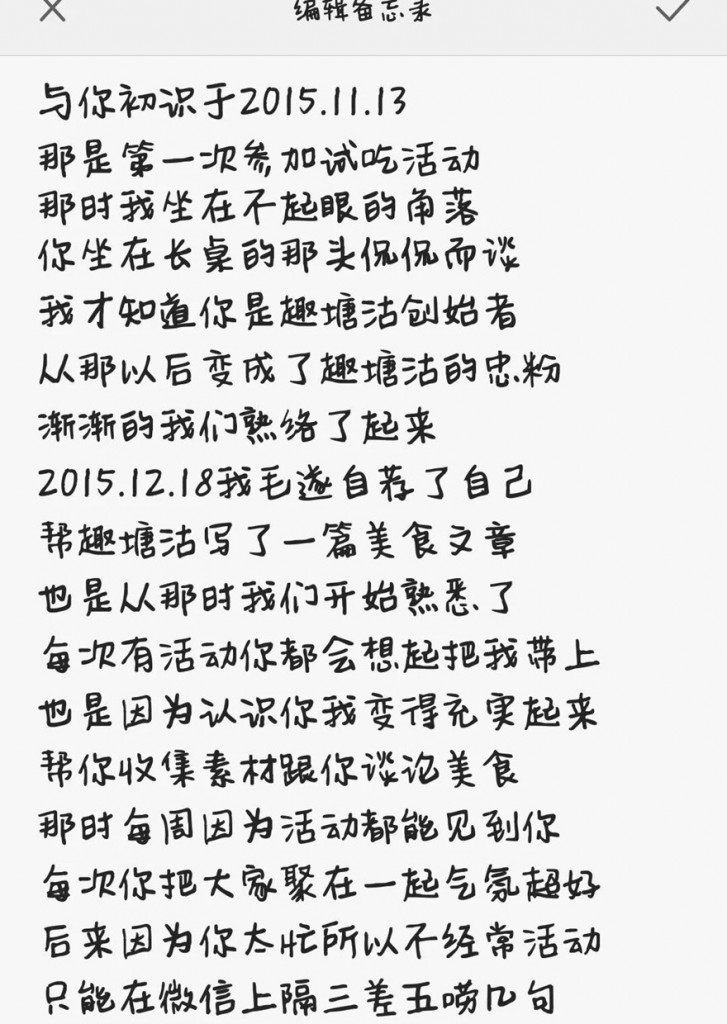 编辑备忘录
与你初识于2015.11.13
那是第一次参加试吃活动
那时我坐在不起眼的角落
你坐在长桌的那头侃侃而谈
我才知道你是趣塘沽创始者
从那以后变成了趣塘沽的忠粉
渐渐的我们熟络了起来
2015.12.18我毛遂自荐了自己
帮趣塘沽写了一篇美食文章
也是从那时我们开始熟悉了
每次有活动你都会想起把我带上
也是因为认识你我变得充实起来
帮你收集素材跟你谈论美食
那时每周因为活动都能见到你
每次你把大家聚在一起气氛超好
后来因为你太忙所以不经常活动
只能在微信上隔三差五唠几句